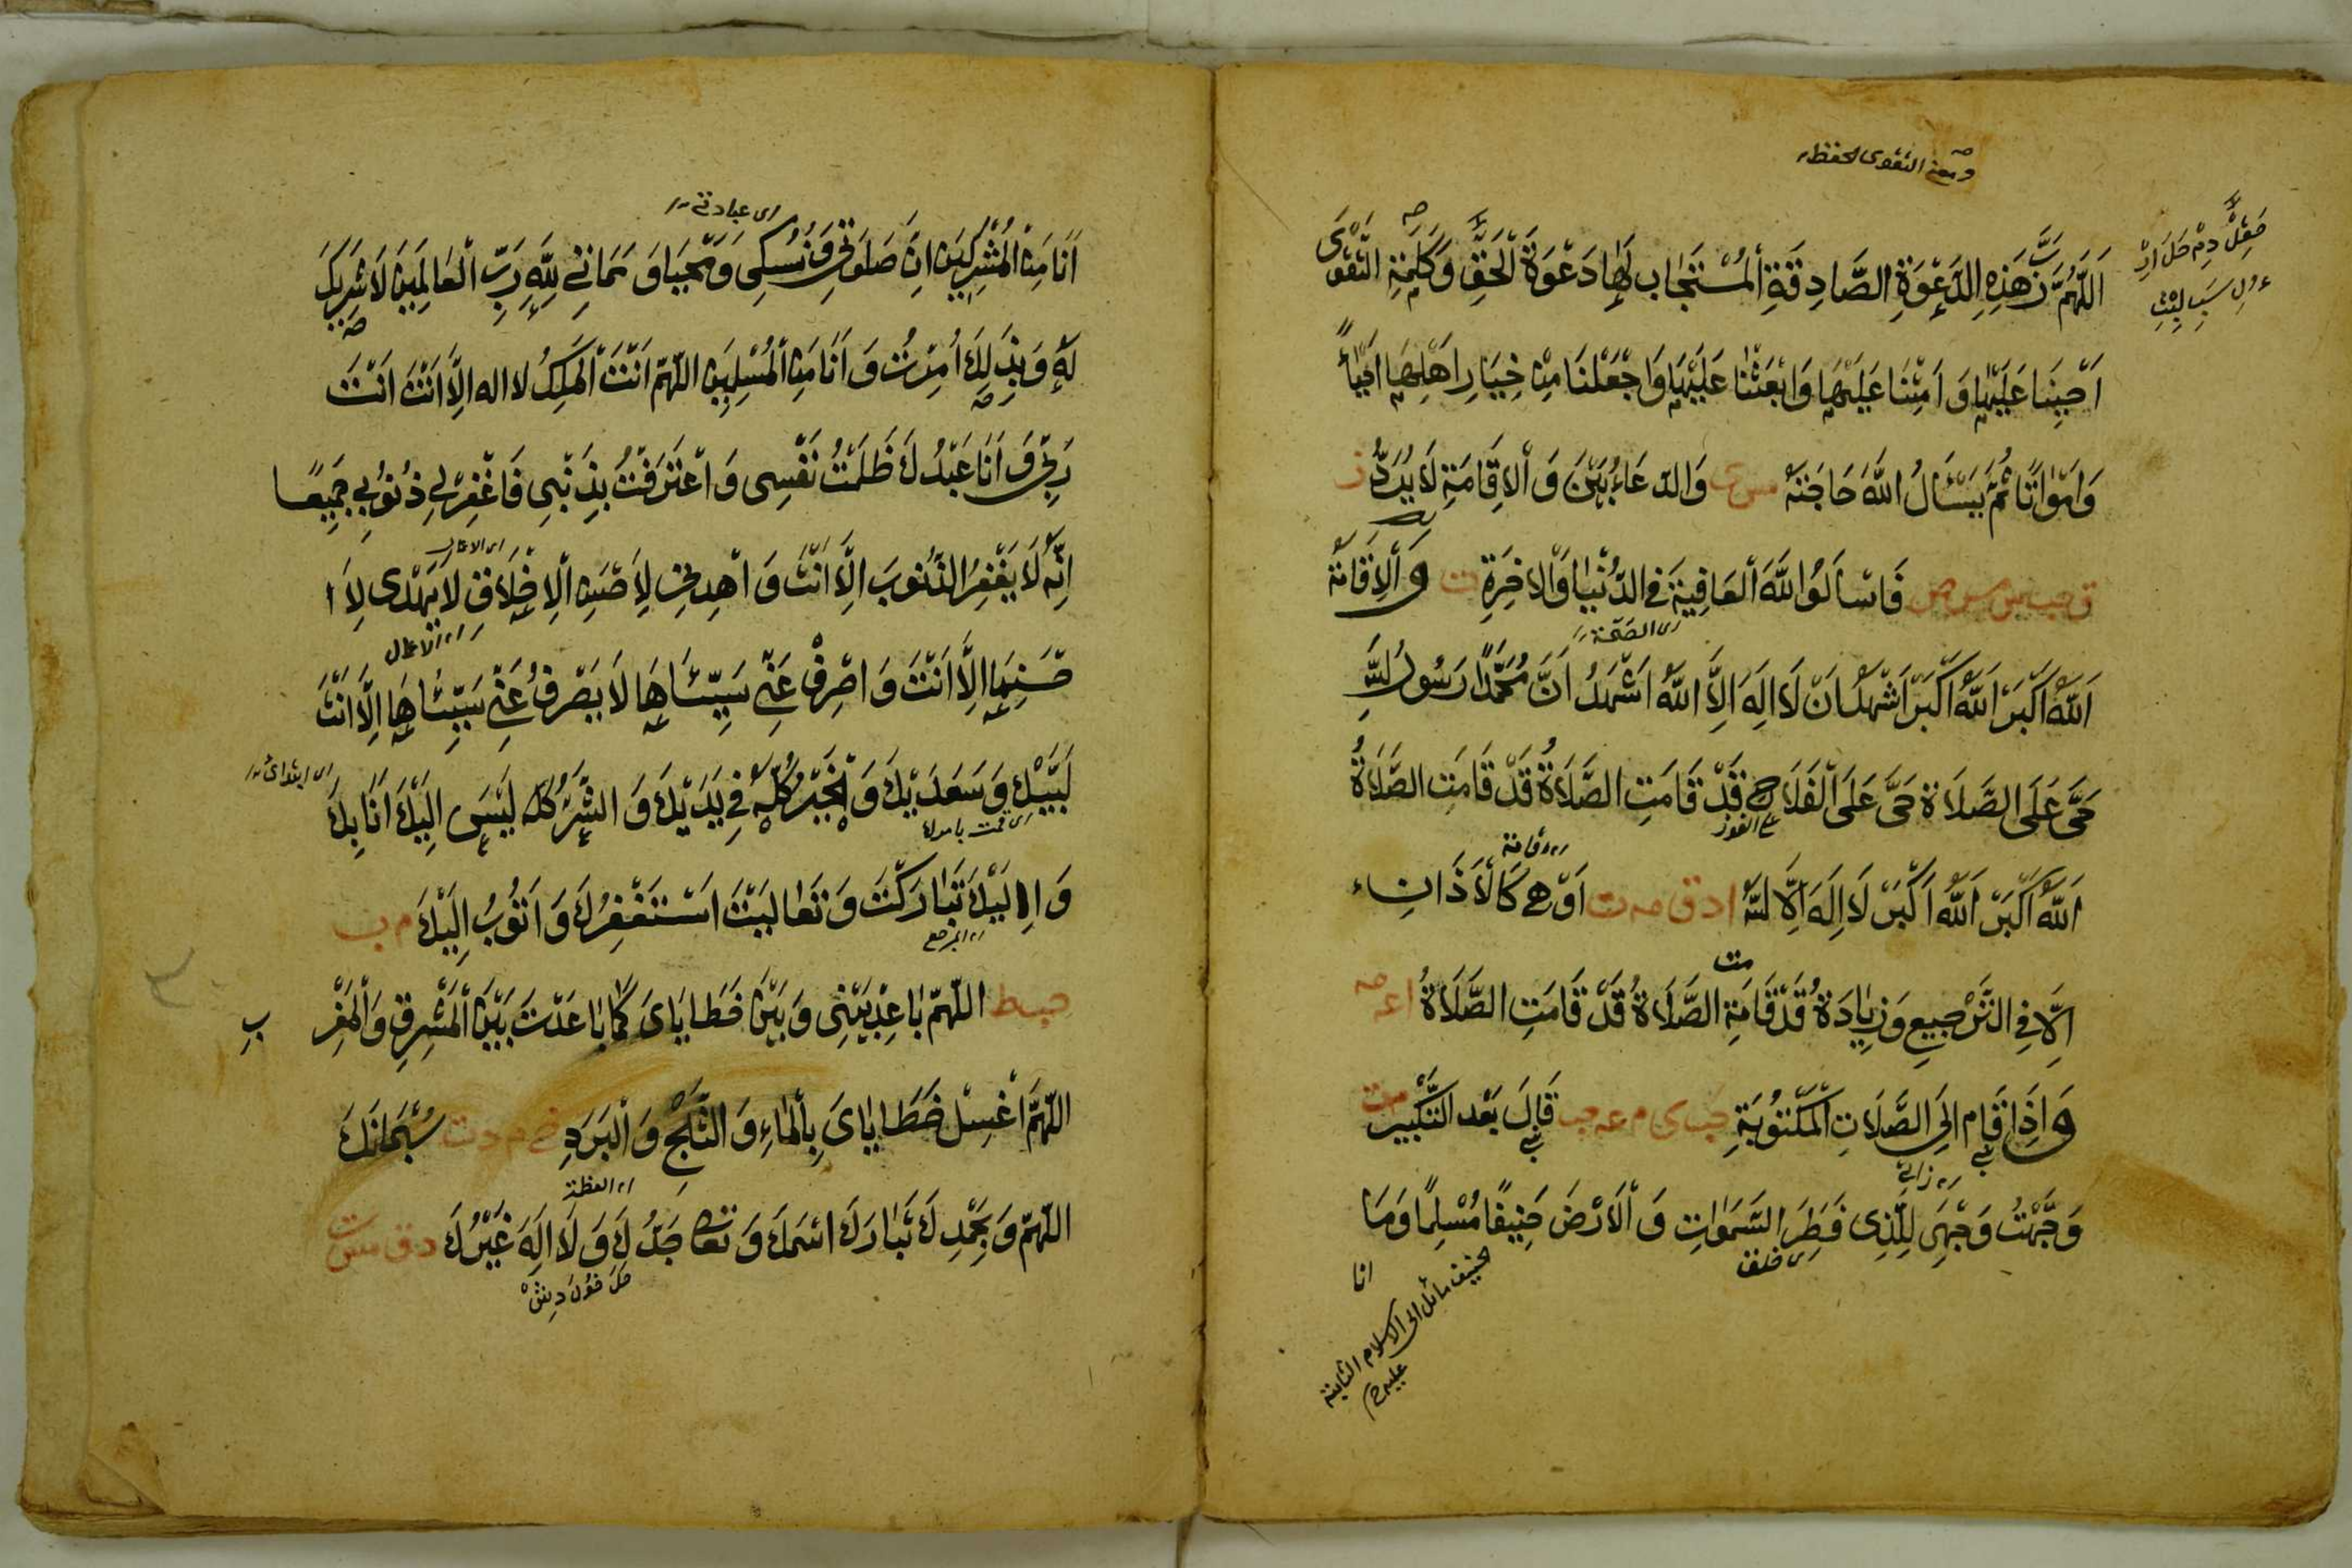 ومعنے التقوی الحفظ
اَللّٰهُمَّ رَبَّ هَذِهِ الدَّعْوَةِ الصَّادِقَةِ الْمُسْتَجَابِ لَهَا دَعْوَةِ الْحَقِّ وَكَلِمَةِ التَّقْوٰى
اَحْيِنَا عَلَيْهَا وَاَمِتْنَا عَلَيْهَا وَابْعَثْنَا عَلَيْهَا وَاجْعَلْنَا مِنْ خِيَارِ اَهْلِهَا اَحْيَاءً
وَاَمْوَاتًا ثُمَّ يَسْئَالُ اللّٰهَ حَاجَتَهُ مس ى وَالدّعَاءُ بَيْنَ وَالْاِقَامَةِ لَا يُرَدُّ
فَاسْاَلُوا اللّٰهَ الْعَافِيَةَ فِي الدُّنْيَا وَالْاٰخِرَةِ ت وَالْاِقَامَةُ
ای الصحة
اَللّٰهُ اَكْبَرُ اَللّٰهُ اَكْبَرُ اَشْهَدُ اَنْ لَا اِلَهَ اِلَّا اللّٰهُ اَشْهَدُ اَنَّ مُحَمَّدًا رَسُولُ اللّٰهِ
حَيَّ عَلَى الصَّلَاةِ حَيَّ عَلَى الْفَلَاحِ قَدْ قَامَتِ الصَّلَاةُ قَدْ قَامَتِ الصَّلَاةُ
اَللّٰهُ اَكْبَرُ اَللّٰهُ اَكْبَرُ لَا اِلَهَ اِلَّا اللّٰهُ ا د ق مه ت اَوْ هِيَ كَالْاَذَانِ
اِلَّا فِي التَّرْجِيعِ وَزِيَادَةُ قَدْ قَامَةِ الصَّلَاةُ قَدْ قَامَتِ الصَّلَاةُ ا عه
وَاِذَا قَامَ اِلَى الصَّلَاتِ الْمَكْتُوبَةِ حب ى م عه حب قَالَ بَعْدَ التَّكْبِيرِ
وَجَّهْتُ وَجْهِيَ لِلَّذِي فَطَرَ السَّمٰوَاتِ وَالْاَرْضَ حَنِيفًا مُسْلِمًا وَمَا
ای خلق
انا
الحنیف مائل الی الاسلام الثابتة
علیه
ای عبادتے
اَنَا مِنَ الْمُشْرِكِينَ اِنَّ صَلَوتِي وَنُسُكِي وَمَحْيَايَ وَمَمَاتِي لِلّٰهِ رَبِّ الْعَالَمِينَ لَا شَرِيكَ
لَهُ وَبِذَلِكَ اُمِرْتُ وَاَنَا مِنَ الْمُسْلِمِينَ اللّٰهُمَّ اَنْتَ الْمَلِكُ لا اله اِلَّا اَنْتَ اَنْتَ
رَبِّي وَاَنَا عَبْدُكَ ظَلَمْتُ نَفْسِي وَاعْتَرَفْتُ بِذَنْبِي فَاغْفِرْ لِي ذُنُوبِي جَمِيعًا
اِنَّهُ لَا يَغْفِرُ الذُّنُوبَ اِلَّا اَنْتَ وَاهْدِنِي لِاَحْسَنِ الْاَخْلَاقِ لَا يَهْدِي لِاَ
ای الاعمال
حْسَنِهَا اِلَّا اَنْتَ وَاصْرِفْ عَنِّي سَيِّئَاهَا لَا يَصْرِفُ عَنِّي سَيِّئَاهَا اِلَّا اَنْتَ
لَبَّيْكَ وَسَعْدَيْكَ وَالْخَيْرُ كُلُّهُ فِي يَدَيْكَ وَالشَّرُّ كُلُّهُ لَيْسَ اِلَيْكَ اَنَا بِكَ
وَاِلَيْكَ تَبَارَكْتَ وَتَعَالَيْتَ اَسْتَغْفِرُكَ وَاَتُوبُ اِلَيْكَ
ای المرجع
حب ط اللّٰهُمَّ بَاعِدْ بَيْنِي وَبَيْنَ خَطَايَايَ كَمَا بَاعَدْتَ بَيْنَ الْمَشْرِقِ وَالْمَغْرِ بِ
اللّٰهُمَّ اغْسِلْ خَطَايَايَ بِالْمَاءِ وَالثَّلْجِ وَالْبَرَدِ خ م د ت سُبْحَانَكَ
ای العظمة
اللّٰهُمَّ وَبِحَمْدِكَ تَبَارَكَ اسْمُكَ وَتَعَالٰى جَدُّكَ وَلَا اِلَهَ غَيْرُكَ د ق مس ت